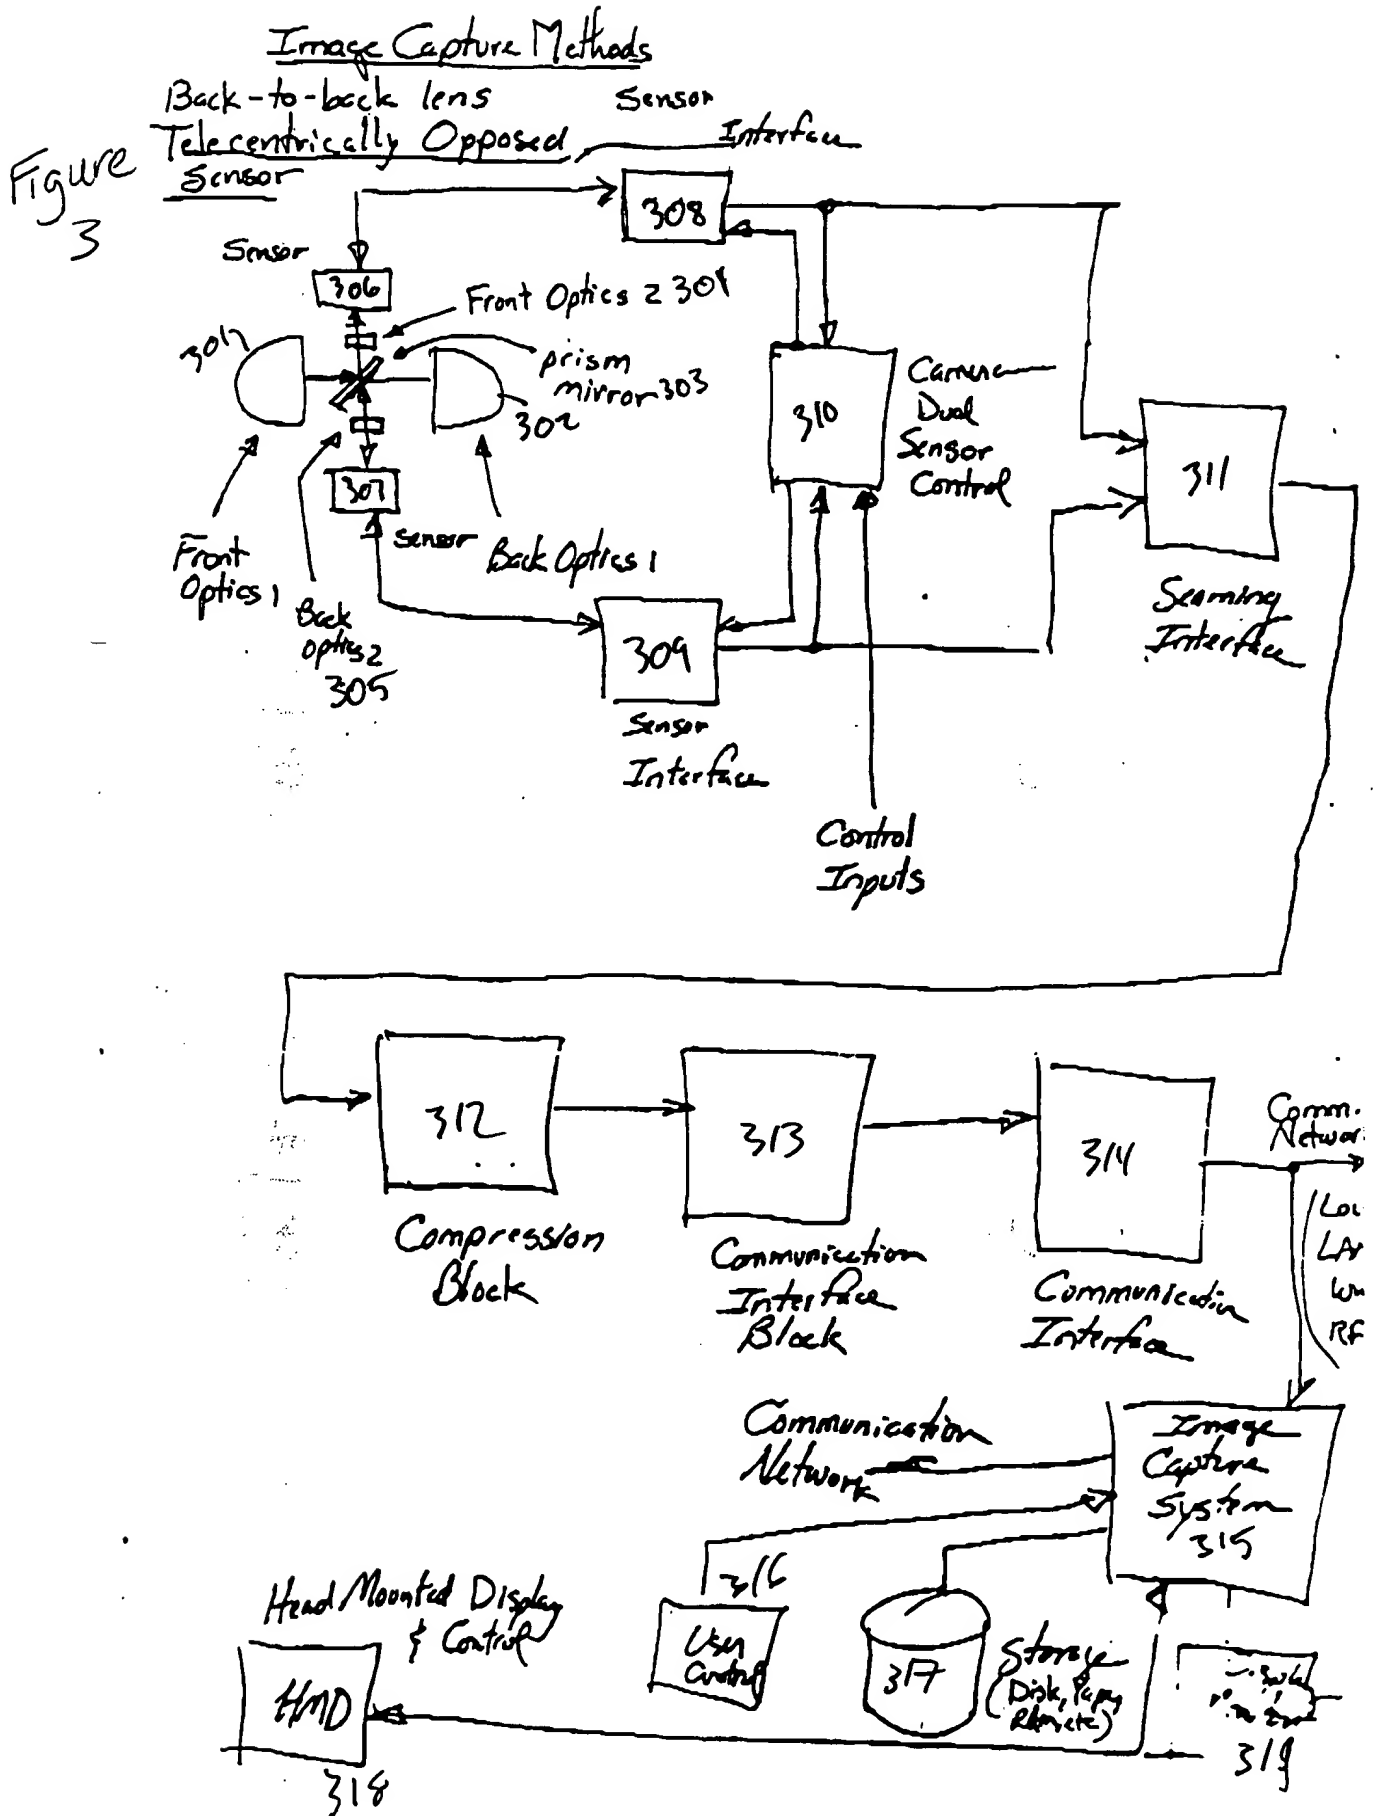 Image Capture Methods
Back-to-back lens
Telecentrically Opposed
Sensor
Figure
3
Sensor
Interface
308
Sensor
306
Front Optics 2 304
301
prism
mirror 303
302
307
Sensor
Front
Optics 1
Back
Optics 2
305
Back Optics 1
310
Camera
Dual
Sensor
Control
311
Seaming
Interface
309
Sensor
Interface
Control
Inputs
312
Compression
Block
313
Communication
Interface
Block
314
Communication
Interface
Comm.
Networ
LAN
RF
Communication
Network
Image
Capture
System
315
316
User
Control
317
Storage
(Disk, Tape,
Remote)
Head Mounted Display
& Control
HMD
318
319